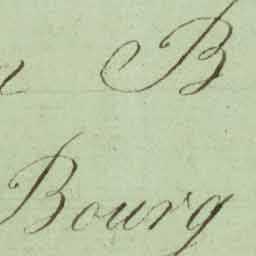 B
Bourg